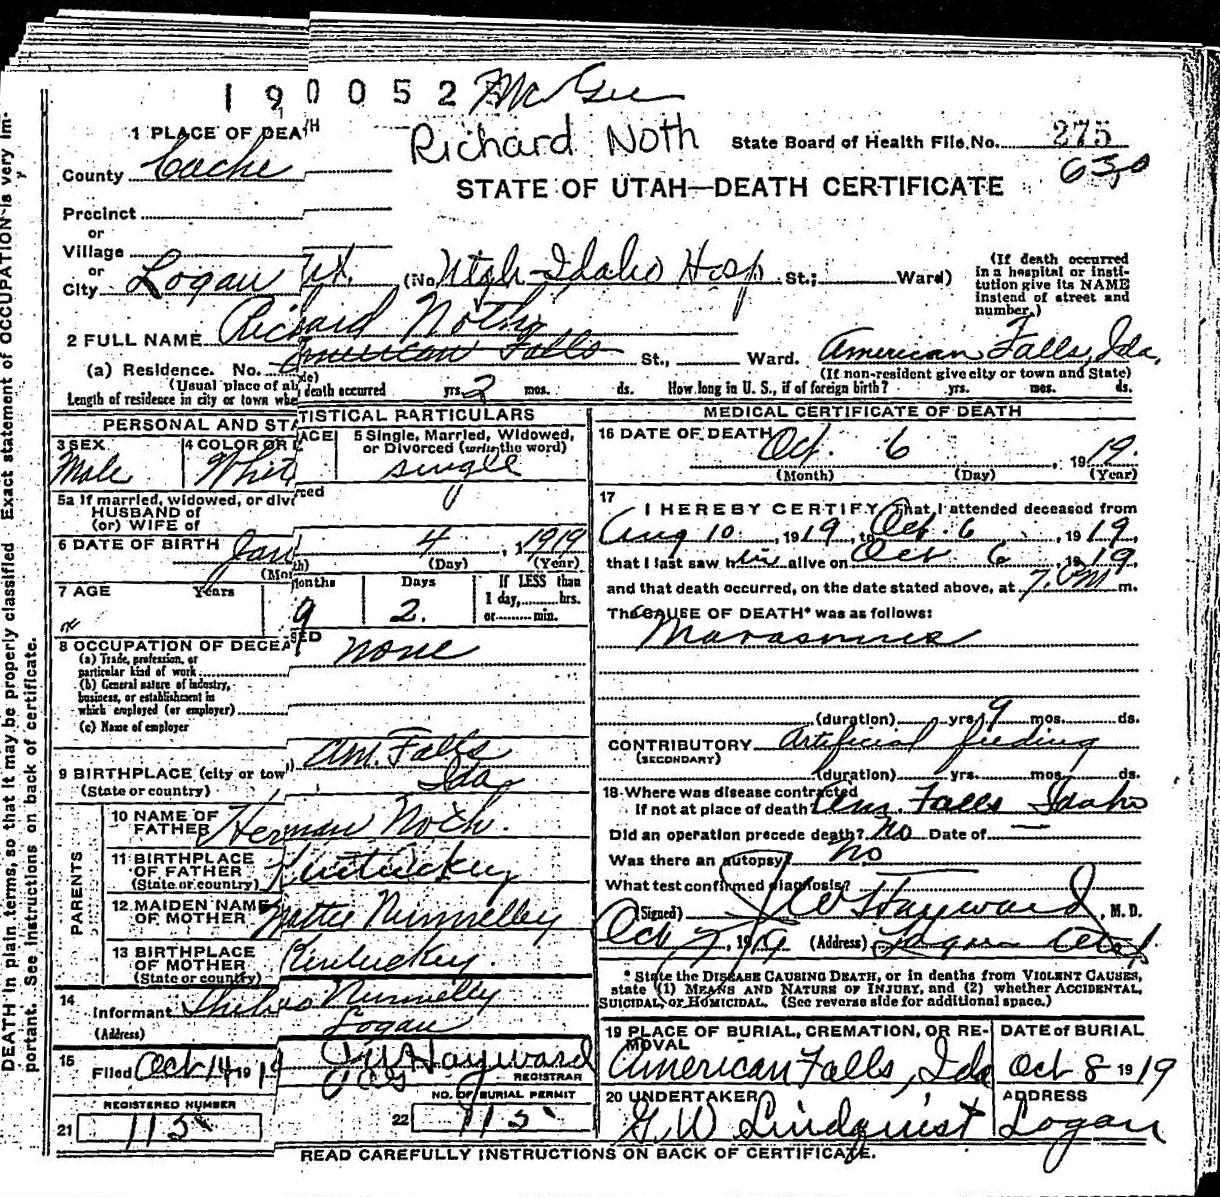 1 9 0 0 5 2 McGee
1 PLACE OF DEATH
Richard Noth
State Board of Health File No. 275
630
County Cache
STATE OF UTAH—DEATH CERTIFICATE
Precinct
or
Village
or
City Logan Ut. (No. Utah-Idaho Hosp St.; Ward)
(If death occurred in a hospital or institution give its NAME instead of street and number.)
2 FULL NAME Richard Noth
(a) Residence. No. American Falls St., Ward. American Falls, Ida.
(Usual place of abode) (If non-resident give city or town and State)
Length of residence in city or town where death occurred yrs. 2 mos. ds. How long in U. S., if of foreign birth? yrs. mos. ds.
PERSONAL AND STATISTICAL PARTICULARS
3 SEX
Male
4 COLOR OR RACE
White
5 Single, Married, Widowed, or Divorced (write the word)
single
5a If married, widowed, or divorced
HUSBAND of
(or) WIFE of
6 DATE OF BIRTH Jan 4, 1919
(Month) (Day) (Year)
7 AGE Years Months Days If LESS than
1 day, hrs.
or min.
9 2.
8 OCCUPATION OF DECEASED
none
(a) Trade, profession, or particular kind of work
(b) General nature of industry, business, or establishment in which employed (or employer)
(c) Name of employer
9 BIRTHPLACE (city or town) Am. Falls
(State or country) Ida
PARENTS
10 NAME OF FATHER Herman Noth.
11 BIRTHPLACE OF FATHER Kentuckey
(State or country)
12 MAIDEN NAME OF MOTHER Mattie Nunnelley
13 BIRTHPLACE OF MOTHER Kentuckey.
(State or country)
14
Informant Nunnelly
(Address) Logan
15
Filed Oct 14 1919 Hayward
REGISTRAR
REGISTERED NUMBER
21 115
NO. OF BURIAL PERMIT
22 115
MEDICAL CERTIFICATE OF DEATH
16 DATE OF DEATH Oct. 6, 1919.
(Month) (Day) (Year)
17
I HEREBY CERTIFY, That I attended deceased from
Aug 10, 1919, to Oct. 6, 1919,
that I last saw him alive on Oct 6 1919,
and that death occurred, on the date stated above, at 7 m.
The CAUSE OF DEATH* was as follows:
Marasmus
(duration) yrs. 9 mos. ds.
CONTRIBUTORY Artificial feeding
(SECONDARY)
(duration) yrs. mos. ds.
18 Where was disease contracted
if not at place of death? Am. Falls Idaho
Did an operation precede death? No Date of —
Was there an autopsy? No
What test confirmed diagnosis?
(Signed) Hayward, M. D.
Oct 7, 1919 (Address) Logan Utah.
* State the DISEASE CAUSING DEATH, or in deaths from VIOLENT CAUSES,
state (1) MEANS AND NATURE OF INJURY, and (2) whether ACCIDENTAL,
SUICIDAL, or HOMICIDAL. (See reverse side for additional space.)
19 PLACE OF BURIAL, CREMATION, OR REMOVAL
American Falls, Ida
DATE of BURIAL
Oct 8 1919
20 UNDERTAKER
G. W. Lindquist
ADDRESS
Logan
READ CAREFULLY INSTRUCTIONS ON BACK OF CERTIFICATE.
DEATH in plain terms, so that it may be properly classified Exact statement of OCCUPATION is very im-
portant. See instructions on back of certificate.